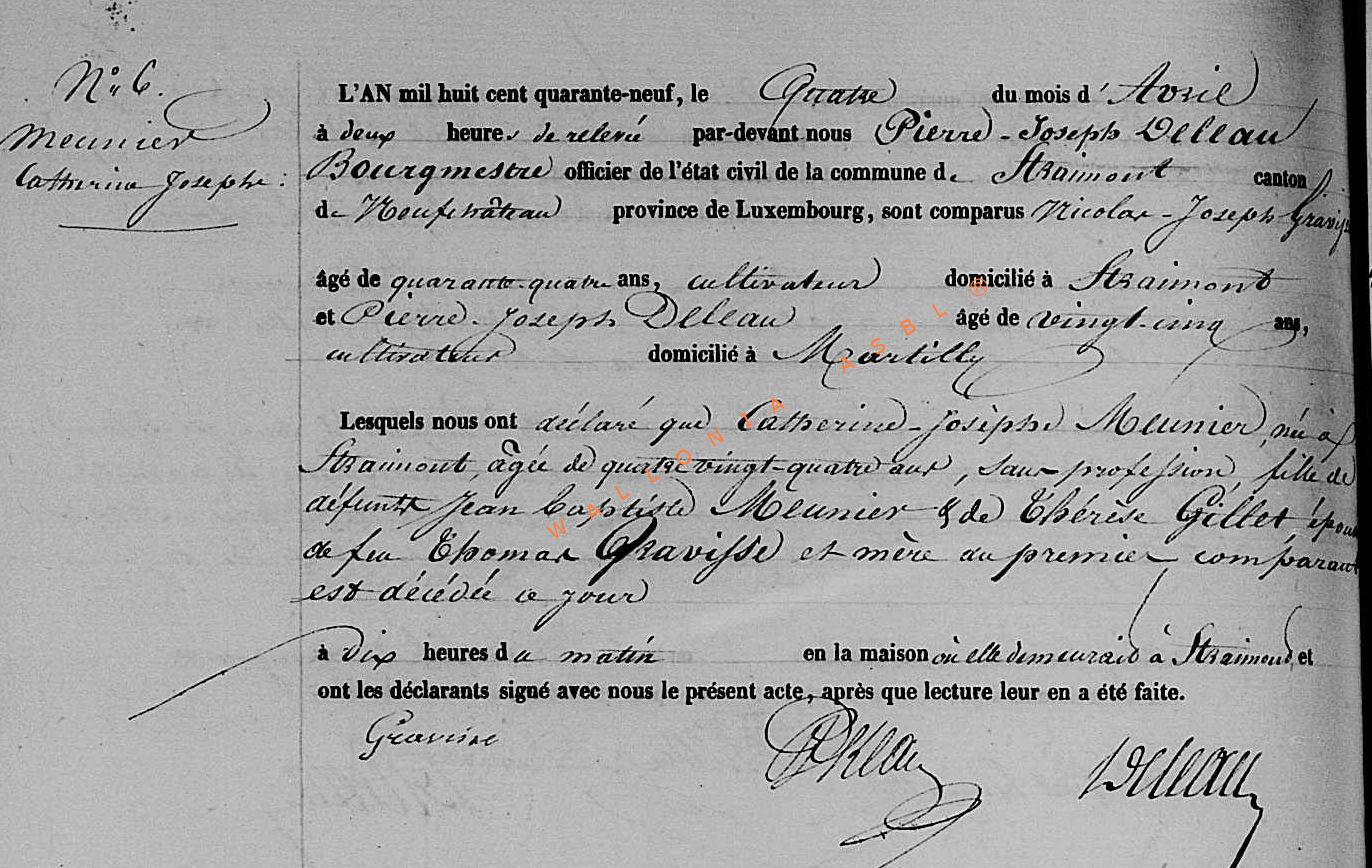 N° 6.
Meunier
Catherine Josephe :
L'AN mil huit cent quarante-neuf, le Quatre du mois d' Avril
à deux heures de relevée par-devant nous Pierre-Joseph Deleau
Bourgmestre officier de l'état civil de la commune de Straimont canton
de Neufchâteau province de Luxembourg, sont comparus Nicolas-Joseph
âgé de quarante-quatre ans, cultivateur domicilié à Straimont
et Pierre-Joseph Deleau âgé de vingt-cinq ans,
cultivateur domicilié à Martilly
Lesquels nous ont déclaré que Catherine-Josèphe Meunier, née à
Straimont, âgée de quatre vingt-quatre ans, sans profession, fille de
défunts Jean Baptiste Meunier & de Thérèse Gillet
de feu Thomas Gravisse et mère du premier comparant
est décédée ce jour
à dix heures du matin en la maison où elle demeurait à Straimont, et
ont les déclarants signé avec nous le présent acte, après que lecture leur en a été faite.
Gravisse
Deleau
WALLONIA ASBL ®